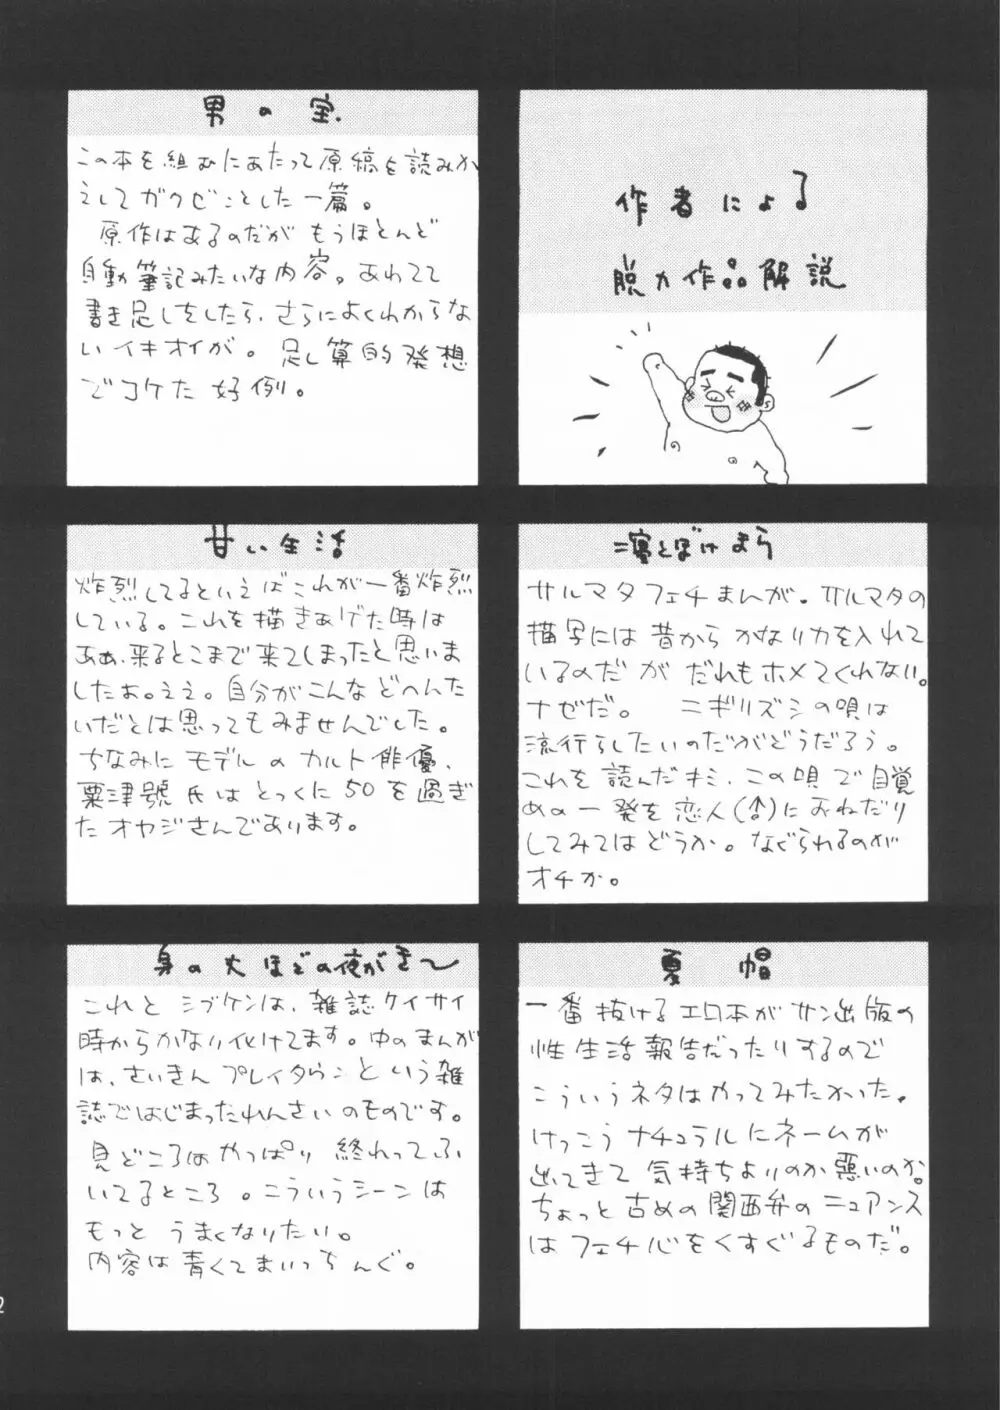 作者による
脱力作品解説
男の宝
この本を組むにあたって原稿を読みか
えしてガクゼンとした一篇。
原作はあるのだがもうほとんど
自動筆記みたいな内容。あわてて
書き足しをしたら、さらによくわからな
いイキオイが。足し算的発想
でコケた好例。
とぼけまら
サルマタフェチまんが。サルマタの
描写には昔からかなり力を入れて
いるのだがだれもホメてくれない。
ナゼだ。ニギリズシの唄は
流行らしたいのだがどうだろう。
これを読んだキミ、この唄で目覚
めの一発を恋人(♂)におねだり
してみてはどうか。なぐられるのが
オチか。
甘い生活
炸烈してるといえばこれが一番炸烈
している。これを描きあげた時は
ああ、来るとこまで来てしまったと思いま
したお。ええ。自分がこんなどへんた
いだとは思ってもみませんでした。
ちなみにモデルのカルト俳優、
粟津號氏はとっくに50を過ぎ
たオヤジさんであります。
夏帽
一番抜けるエロ本がサン出版の
性生活報告だったりするので
こういうネタはやってみたかった。
けっこうナチュラルにネームが
出てきて気持ちよいのか悪いのか。
ちょっと古めの関西弁のニュアンス
はフェチ心をくすぐるものだ。
身の丈ほどの夜がき〜
これとシブケンは、雑誌ケイサイ
時からかなり化けてます。中のまんが
は、さいきんプレイタウンという雑
誌ではじまったれんさいのものです。
見どころはやっぱり終わってふ
いてるところ。こういうシーンは
もっとうまくなりたい。
内容は青くてまいっちんぐ。
2